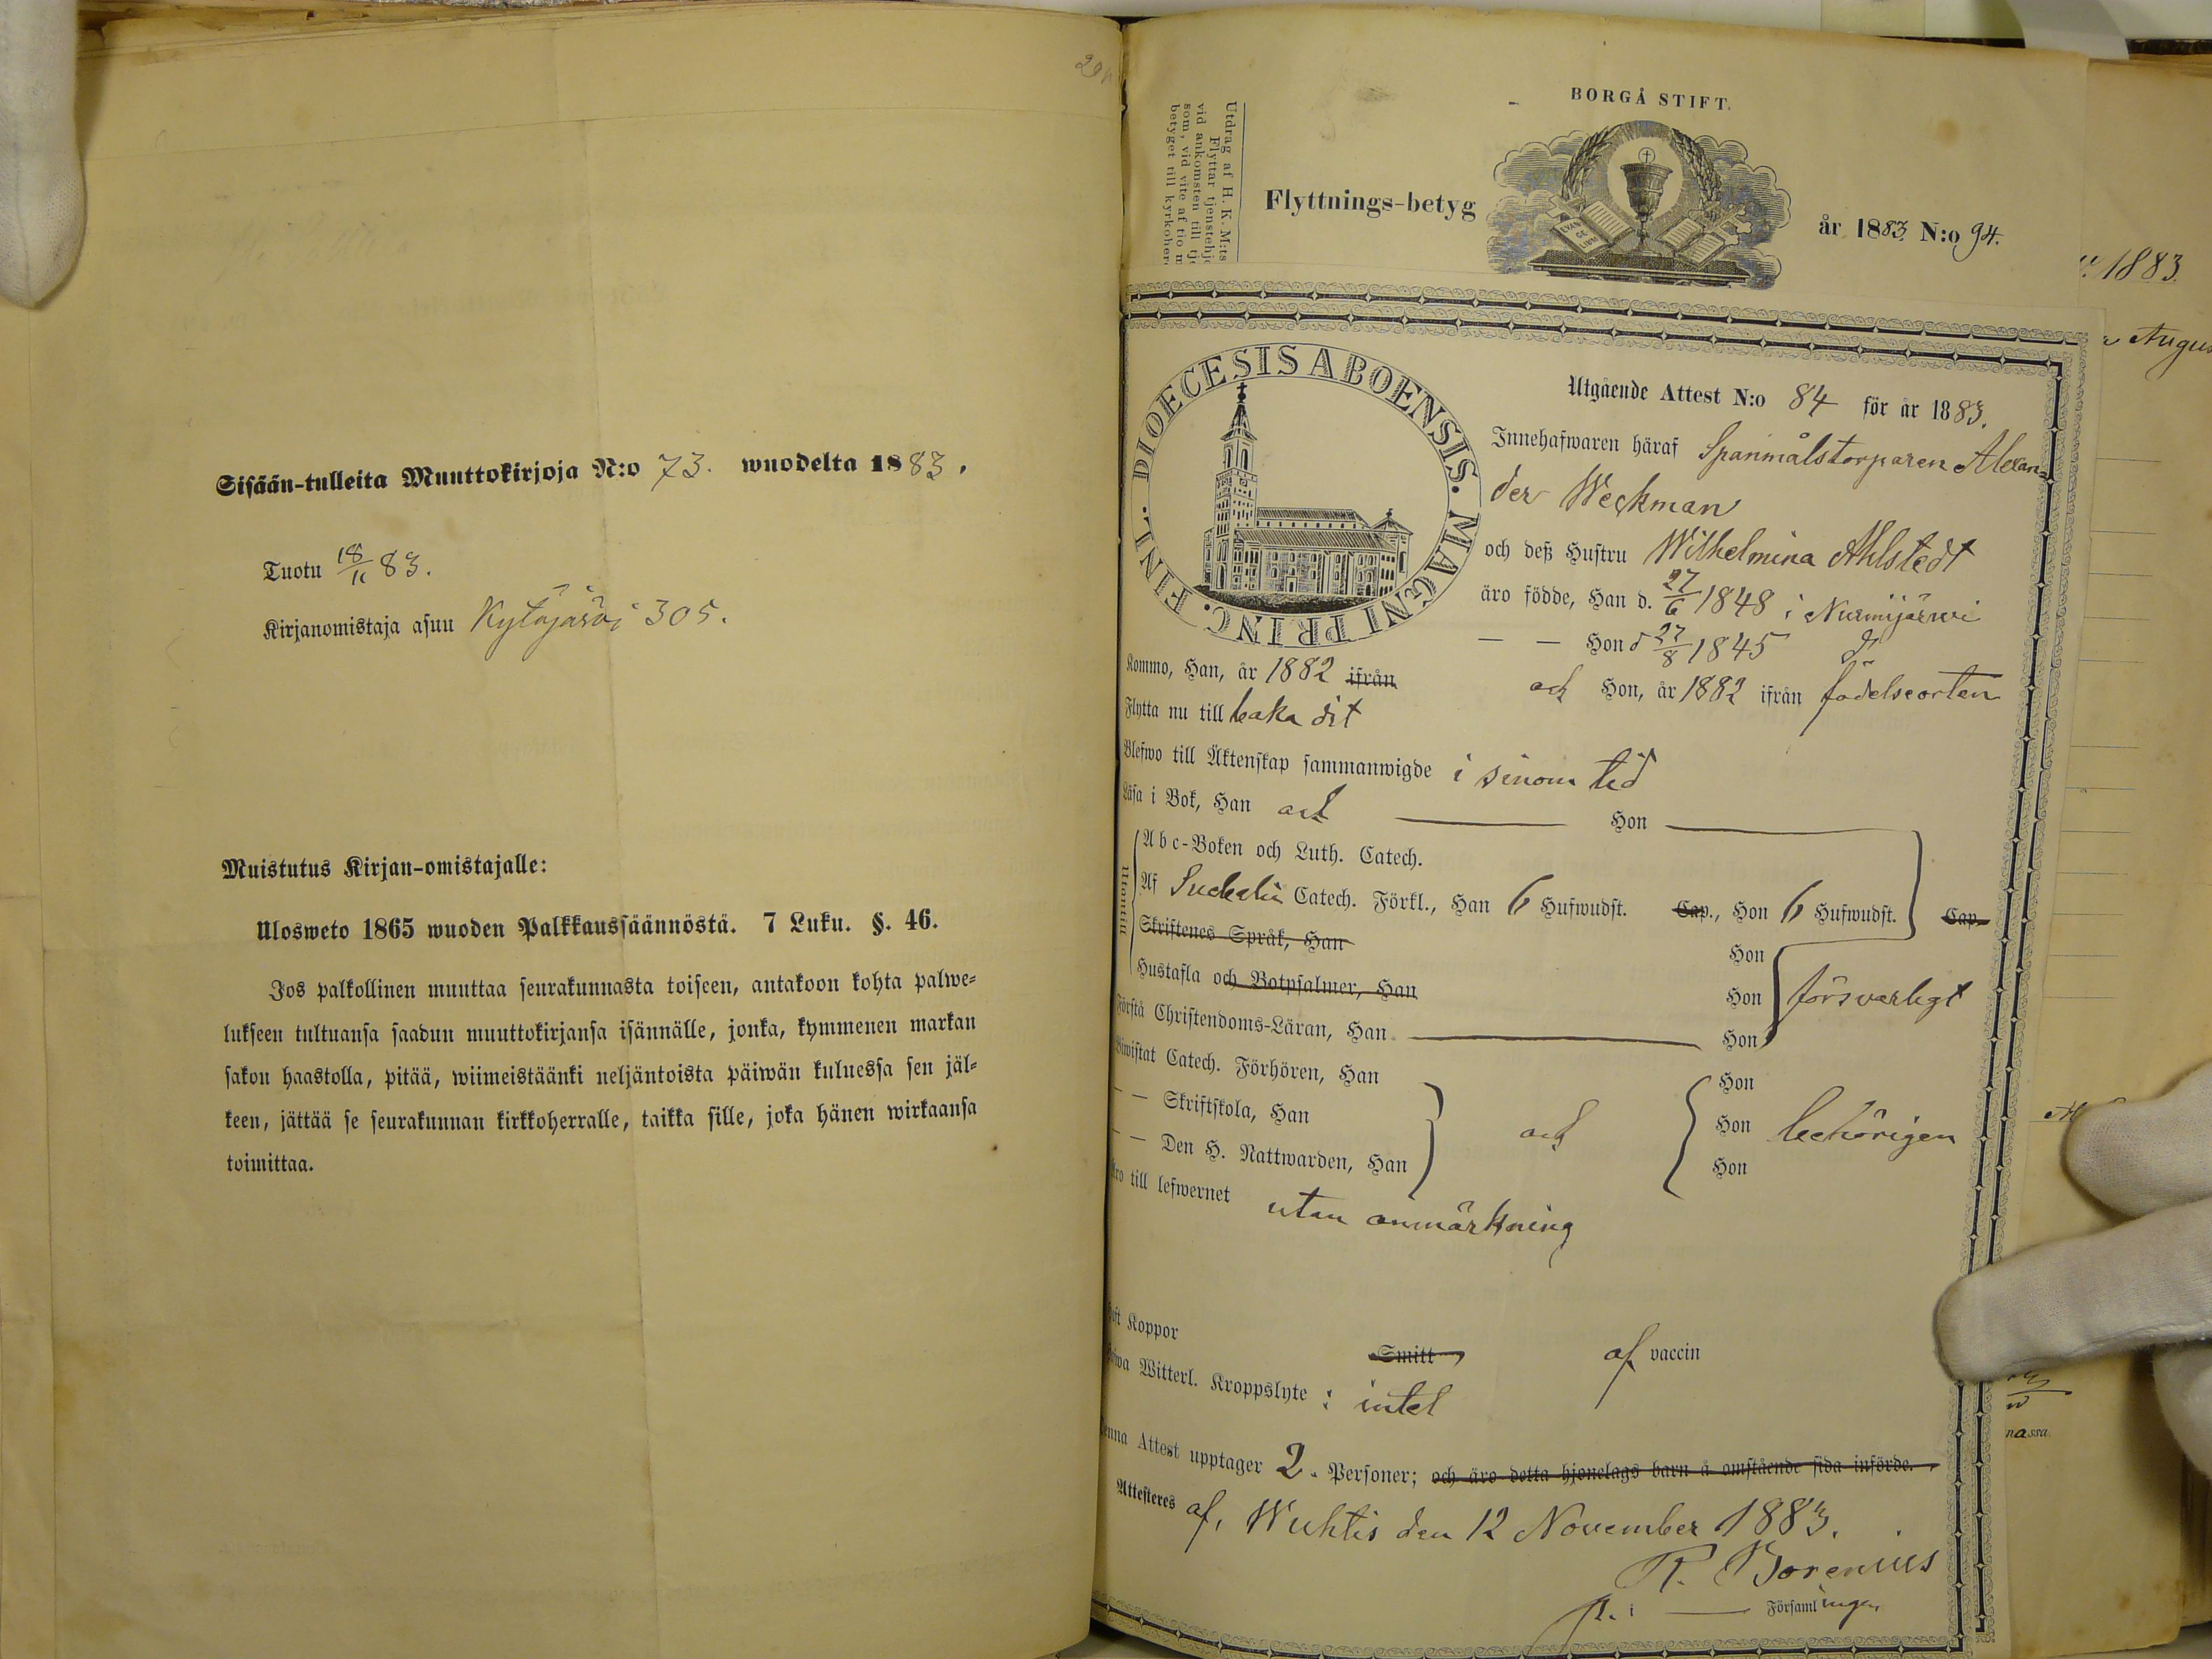 Sisään-tulleita Muuttokirjoja N:o 73. wuodelta 1883.
Tuotu 18/11 83.
Kirjanomistaja asuu Kytäjärvi 305.
Muistutus Kirjan-omistajalle:
Ulosweto 1865 wuoden Palkkaussäännöstä. 7 Luku. §. 46.
Jos palkollinen muuttaa seurakunnasta toiseen, antakoon kohta palwe-
lukseen tultuansa saadun muuttokirjansa isännälle, jonka, kymmenen markan
sakon haastolla, pitää, wiimeistäänki neljäntoista päiwän kuluessa sen jäl-
keen, jättää se seurakunnan kirkkoherralle, taikka sille, joka hänen wirkaansa
toimittaa.
BORGÅ STIFT.
Utdrag af H. K. M:ts
Flyttar tjenstehj
vid ankomsten till tj
som, vid vite af tio m
betyget till kyrkoher
Flyttnings-betyg
EVAN
GE
LIUM
år 1883 N:o 94.
1883.
Augus
DIOECESIS ABOENSIS. MAGNI PRINC. FINL.
Utgående Attest N:o 84 för år 1883.
Innehafwaren häraf Spanmålstorparen Alexan-
der Weckman
och deß Hustru Wilhelmina Ahlstedt
äro födde, Han d. 27/6 1848 i Nurmijärwi
— — Hon d 27/8 1845 do
Kommo, Han, år 1882 ifrån och Hon, år 1882 ifrån födelseorten
Flytta nu till baka dit
Blefwo till Äktenskap sammanwigde i sinom tid
Läsa i Bok, Han och Hon
Utantill
Abc-Boken och Luth. Catech.
Af Svebelii Catech. Förkl., Han 6 Hufwudst. Cap., Hon 6 Hufwudst. Cap.
Skriftenes Språk, Han Hon
Hustafla och Botpsalmer, Han Hon försvarligt
Förstå Christendoms-Läran, Han Hon
Biwistat Catech. Förhören, Han Hon
— — Skriftskola, Han och Hon behörigen
— — Den H. Nattwarden, Han Hon
Äro till lefwernet utan anmärkning
Haft Koppor Smitt af vaccin
Hafwa Witterl. Kroppslyte : intet
Denna Attest upptager 2. Personer; och äro detta hjonelags barn å omstående sida införde.
Attesteres af, Wichtis den 12 November 1883.
R. Borenius
p. i Församlingen
nassa.